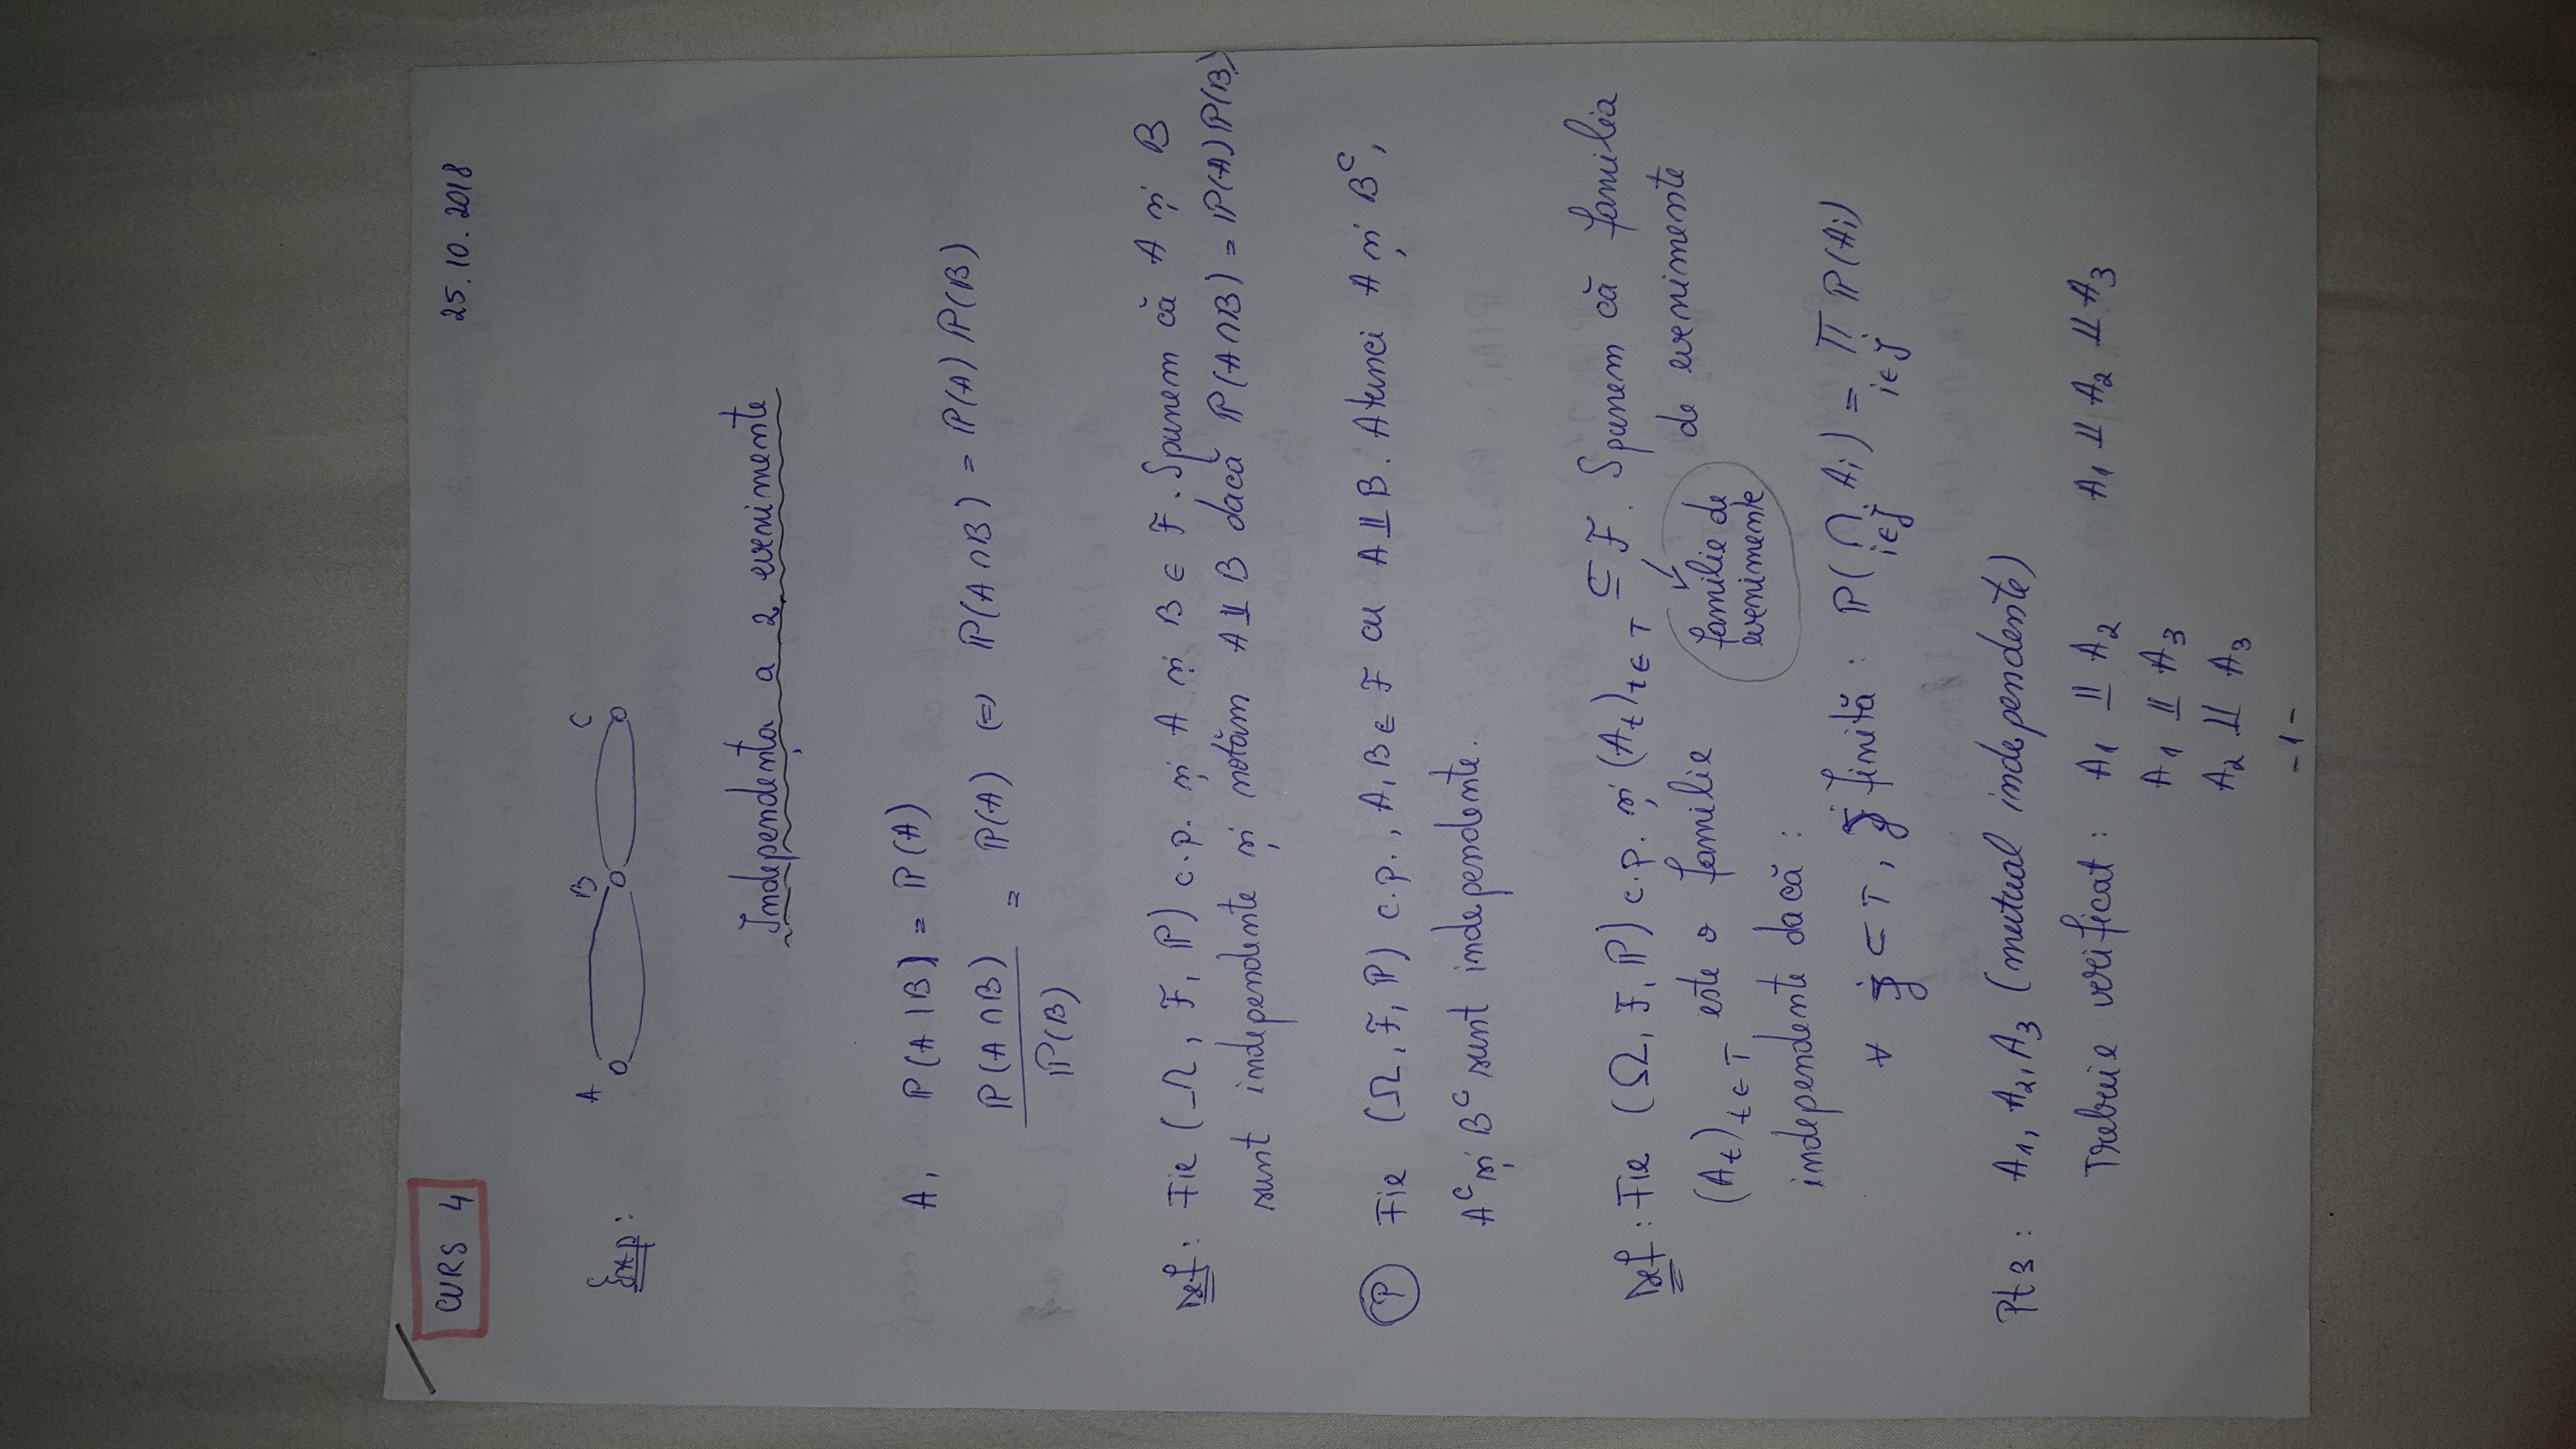 CURS 4
25.10.2018
Exp:
A B C
Independența a 2 evenimente
A, P(A|B) = P(A)
P(A∩B) / P(B) = P(A) (=) P(A∩B) = P(A) P(B)
Def: Fie (Ω, F, P) c.p. și A și B ∈ F. Spunem că A și B
sunt independente și notăm A ⫫ B dacă P(A∩B) = P(A) P(B)
(P) Fie (Ω, F, P) c.p., A, B ∈ F cu A ⫫ B. Atunci A și Bᶜ,
Aᶜ și Bᶜ sunt independente.
Def: Fie (Ω, F, P) c.p. și (At)t∈T ⊆ F. Spunem că familia
(At)t∈T este o familie de evenimente
familie de
evenimente
independente dacă:
∀ J ⊂ T, J finită: P(∩i∈J Ai) = Πi∈J P(Ai)
Pt 3: A1, A2, A3 (mutual independente)
Trebuie verificat: A1 ⫫ A2 A1 ⫫ A2 ⫫ A3
A1 ⫫ A3
A2 ⫫ A3
-1-